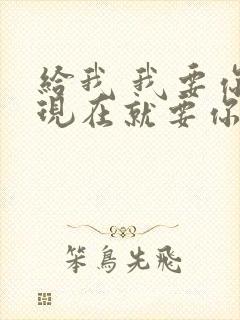 給我 我要你
現在就要你
笨鳥先飛